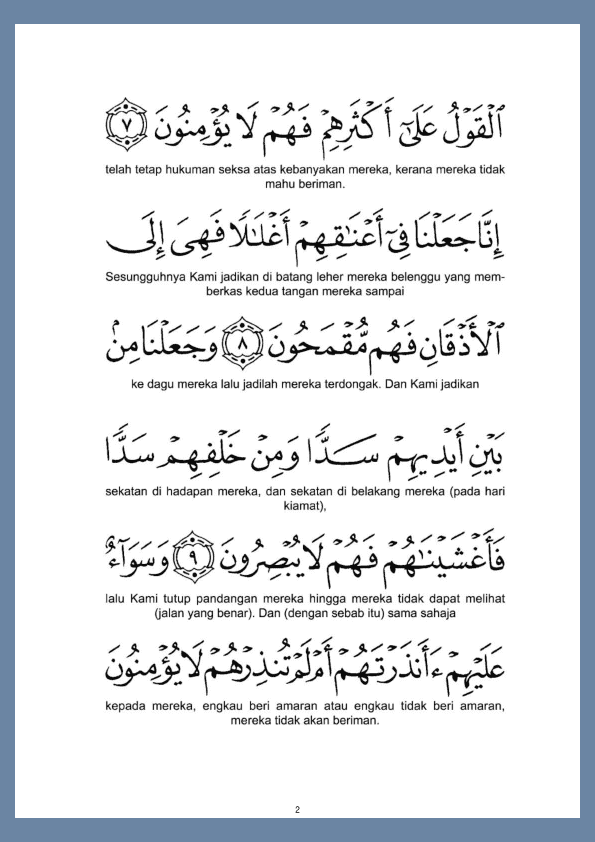 ٱلْقَوْلُ عَلَىٰٓ أَكْثَرِهِمْ فَهُمْ لَا يُؤْمِنُونَ ٧
telah tetap hukuman seksa atas kebanyakan mereka, kerana mereka tidak
mahu beriman.
إِنَّا جَعَلْنَا فِىٓ أَعْنَـٰقِهِمْ أَغْلَـٰلًا فَهِىَ إِلَى
Sesungguhnya Kami jadikan di batang leher mereka belenggu yang mem-
berkas kedua tangan mereka sampai
ٱلْأَذْقَانِ فَهُم مُّقْمَحُونَ ٨ وَجَعَلْنَا مِنۢ
ke dagu mereka lalu jadilah mereka terdongak. Dan Kami jadikan
بَيْنِ أَيْدِيهِمْ سَدًّا وَمِنْ خَلْفِهِمْ سَدًّا
sekatan di hadapan mereka, dan sekatan di belakang mereka (pada hari
kiamat),
فَأَغْشَيْنَـٰهُمْ فَهُمْ لَا يُبْصِرُونَ ٩ وَسَوَآءٌ
lalu Kami tutup pandangan mereka hingga mereka tidak dapat melihat
(jalan yang benar). Dan (dengan sebab itu) sama sahaja
عَلَيْهِمْ ءَأَنذَرْتَهُمْ أَمْ لَمْ تُنذِرْهُمْ لَا يُؤْمِنُونَ
kepada mereka, engkau beri amaran atau engkau tidak beri amaran,
mereka tidak akan beriman.
2